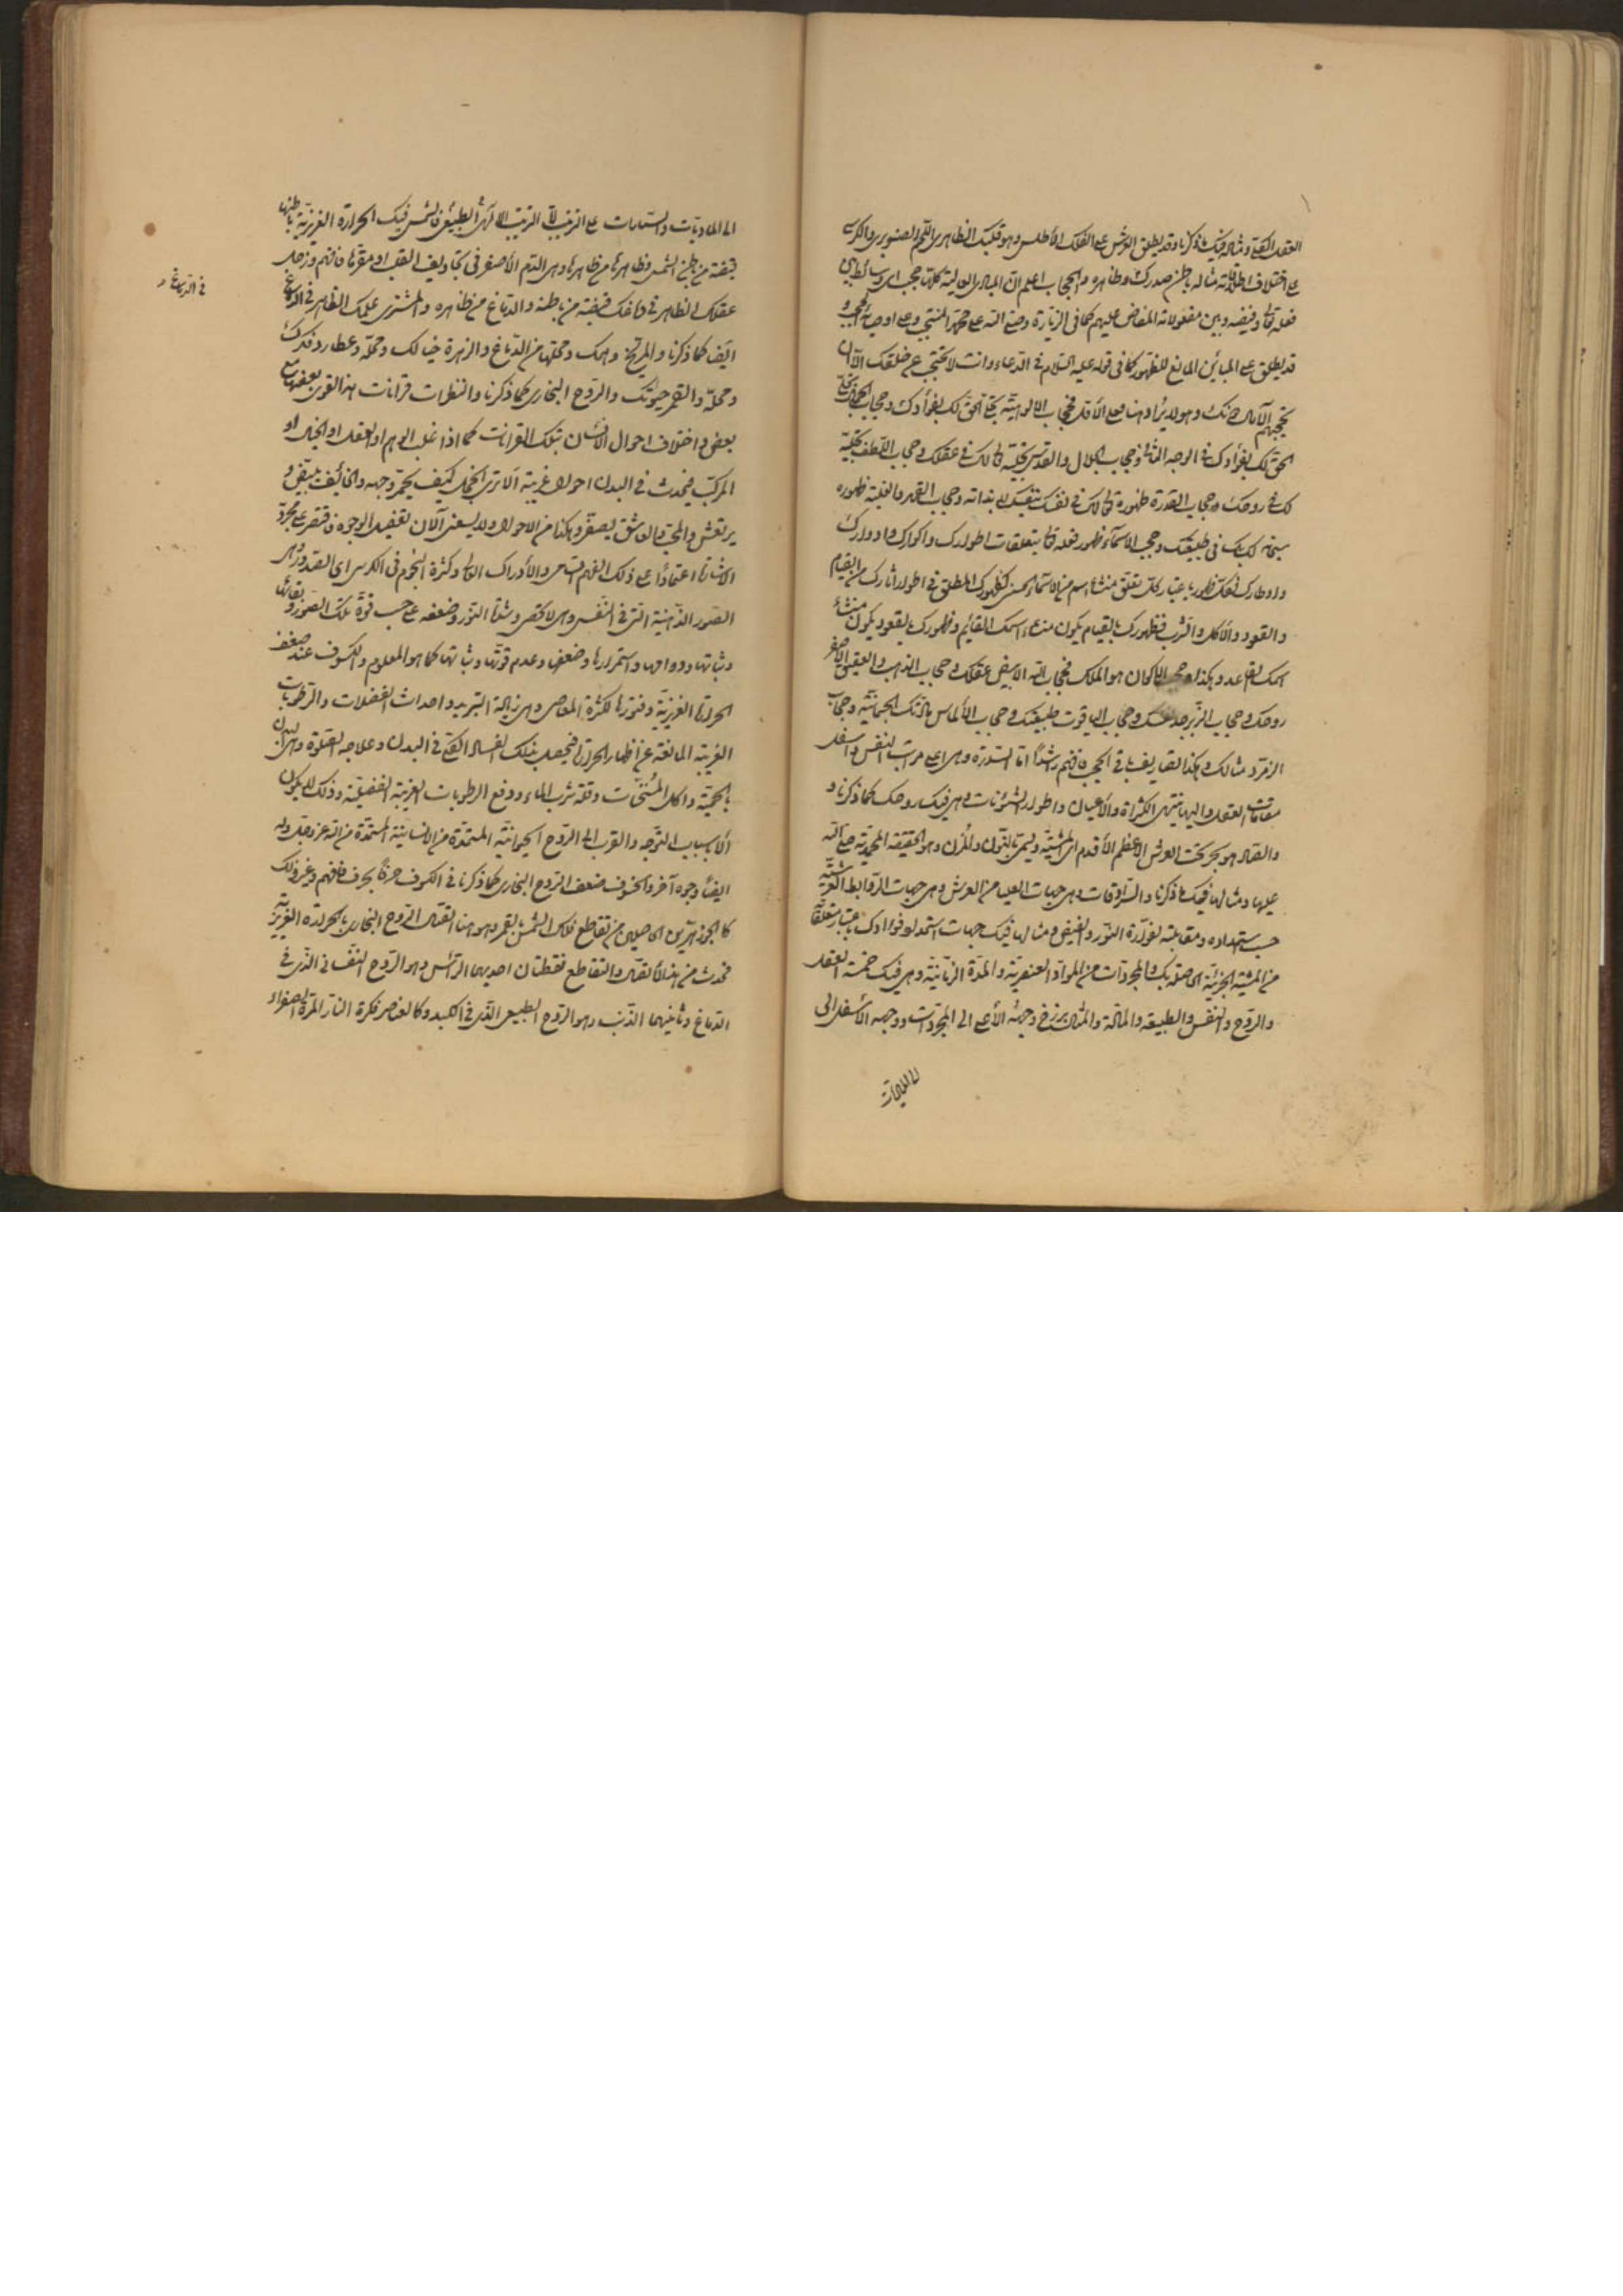 العقل الكلي ومثاله فيك ما ذكرنا وقد يطلق العرش على الفلك الأطلس وهو قلبك الظاهري اللحم الصنوبري والكرسي
على اختلاف اطلاقاته مثاله باطن صدرك وظاهره والحجاب اعلم ان المبادي العالية كلها حجب اي وسائط بين
فعله تعالى وفيضه وبين مفعولاته المفاض عليهم كما في الزيارة وصلى الله على محمد المنتجب وعلى اوصيائه الحجب و
قد يطلق على المباين المانع للظهور كما في قوله عليه السلام في الدعاء وانت لا تحتجب عن خلقك الا ان
تحجبهم الآمال دونك وهو لا يراد هنا فعلى الأول فحجاب الالوهية تجلي الحق لك بفؤادك وحجاب
الحق لك بفؤادك في الوجه الثاني وحجاب الجلال والقدس تجليه تعالى لك في عقلك وحجاب اللطف تجليه
لك في روحك وحجاب القدرة ظهوره تعالى لك في نفسك بنفسك لا بذاته وحجاب القهر والغلبة ظهوره
سبحانه لك بك في طبيعتك وحجب الاسماء ظهور فعله تعالى بتعلقات اطوارك واكوارك وادوارك
واوطارك فلك ظهور باعتبار كل تعلق منشاء اسم من الاسماء الحسنى كظهورك المطلق في اطوار اثارك من القيام
والقعود والأكل والشرب فظهورك بالقيام يكون منشاء اسمك القائم وظهورك بالقعود يكون منشاء
اسمك القاعد وهكذا وحجب الاكوان هو الملك فحجاب الدر الابيض عقلك وحجاب الذهب والعقيق الاصفر
روحك وحجاب الزبرجد نفسك وحجاب الياقوت طبيعتك وحجاب الألماس مادتك الجسمانية وحجاب
الزمرد مثالك وهكذا تصاريف باقي الحجب فافهم راشدا اما السدرة وهي اعلى مراتب النفس واسفل
مقامات العقل واليها ينتهي الكثرة والأعيان واطوار الشئونات وهي فيك روحك كما ذكرنا و
والصاد هو بحر تحت العرش الاعظم الأقدم اي المشية ويسمى بالنون والمزن وهو الحقيقة المحمدية صلى الله
عليها ومثالها فيك ما ذكرنا والسرادقات وهي جهات العليا من العرش وهي جهات الروابط العرشية
حسب استمداده ومقابلته لفوارة النور والفيض ومثالها فيك جهات استمداد فؤادك باعتبار تعلقاتها
من المشية الجزئية الخاصة بك والمجردات من المواد العنصرية والمدة الزمانية وهي فيك خمسة العقل
والروح والنفس والطبيعة والمادة والمثال برزخ وجهه الأعلى الى المجردات ووجهه الأسفل الى
الماديات
الى الماديات والسماوات على الترتيب لأن الترتيب الالهي الطبيعي فالشمس فيك الحرارة الغريزية باطنها
قبضة من باطن الشمس وظاهرها من ظاهرها وهي الدم الأصفر في تجاويف القلب او مقرها فافهم وزحل
عقلك الظاهر في دماغك قبضة من باطنه والدماغ من ظاهره والمشتري علمك الظاهر في الدماغ
ايضا كما ذكرنا والمريخ وهمك ومحلها من الدماغ والزهرة خيالك ومحله وعطارد فكرك
ومحله والقمر حيوتك والروح البخاري كما ذكرنا والنظرات قرانات هذا القوى بعضها مع
بعض واختلاف احوال الانسان بتلك القرانات كما اذا غلب الوهم او العقل او الخيال او
المركب فيحدث في البدن احوالا غريبة الا ترى الخجل كيف يحمر وجهه والخائف يبيض و
يرتعش والمحب والعاشق يصفر وهكذا من الاحوال ولا يسعنى الآن تفصيل الوجوه فنقتصر على مجرد
الاشارة اعتمادا على ذلك الفهم السامي والأدراك العالي وكثرة النجوم في الكرسي اي الصدر هي
الصور الذهنية التي في النفس وهي لا تحصى وشدة النور وضعفه على حسب قوة تلك الصور وبقائها
وثباتها ودوامها واستمرارها وضعفها وعدم قوتها وثباتها كما هو المعلوم والكسوف عند ضعف
الحرارة الغريزية وفتورها لكثرة المعاصي وهي زيادة التبريد واحداث الفضلات والرطوبات
الغريبة المانعة عن اظهار الحرارة فيحصل بذلك الفساد الكلي في البدن وعلاجه الصلوة وهي البدن
بالحمية واكل المسخنات وقلة شرب الماء ودفع الرطوبات الغريبة الفضلية وذلك لا يكون
الأ بسبب التوجه والقرب الى الروح الحيوانية المستمدة من الانسانية المستمدة من الله عز وجل وله
ايضا وجوه آخر والخسوف ضعف الروح البخاري كما ذكرنا في الكسوف حرفا بحرف فافهم وغير ذلك
كالجوزهرين الحاصلين من تقاطع فلك الشمس بالقمر وهو هنا اتصال الروح البخاري بالحرارة الغريزية
فحدث من هذا الأتصال والتقاطع نقطتان احديهما الرأس وهو الروح النفساني الذي في
الدماغ وثانيتهما الذنب وهو الروح الطبيعي الذي في الكبد وكالعناصر فكرة النار المرة الصفراء
في الدماغ و